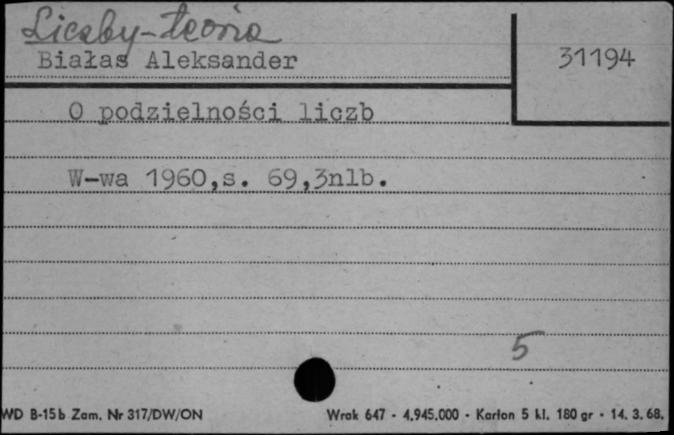 Liczby-teoria
Białas Aleksander
31194
O podzielności liczb
W-wa 1960,s. 69,3nlb.
5
WD B-15b Zam. Nr 317/DW/ON
Wrak 647 - 4.945.000 - Karton 5 kl. 180 gr - 14. 3. 68.